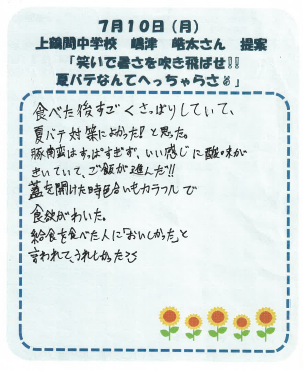 7月10日(月)
上鶴間中学校 嶋津 皓太さん 提案
「笑いで暑さを吹き飛ばせ!!
夏バテなんてへっちゃらさぁ」
食べた後すごくさっぱりしていて、
夏バテ対策によかった!と思った。
豚南蛮はすっぱすぎず、いい感じに酸味が
きいていて、ご飯が進んだ!!
蓋を開けた時色合いもカラフルで
食欲がわいた。
給食を食べた人に「おいしかった」と
言われて、うれしかった